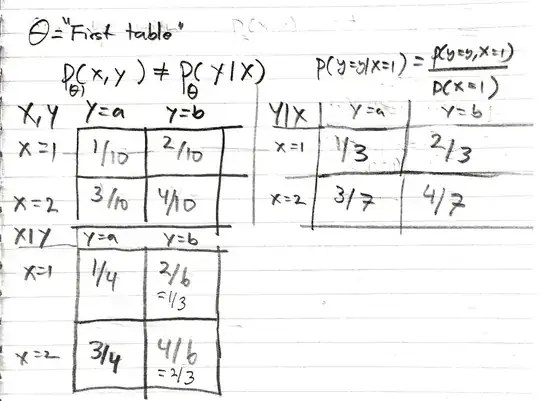 θ="First table"
P(x,y) ≠ P(Y|X)
θ θ
P(y=y|x=1) = P(y=y,x=1)
P(x=1)
X,Y Y=a Y=b
X=1 1/10 2/10
X=2 3/10 4/10
Y|X Y=a Y=b
X=1 1/3 2/3
X=2 3/7 4/7
X|Y Y=a Y=b
X=1 1/4 2/6
=1/3
X=2 3/4 4/6
=2/3